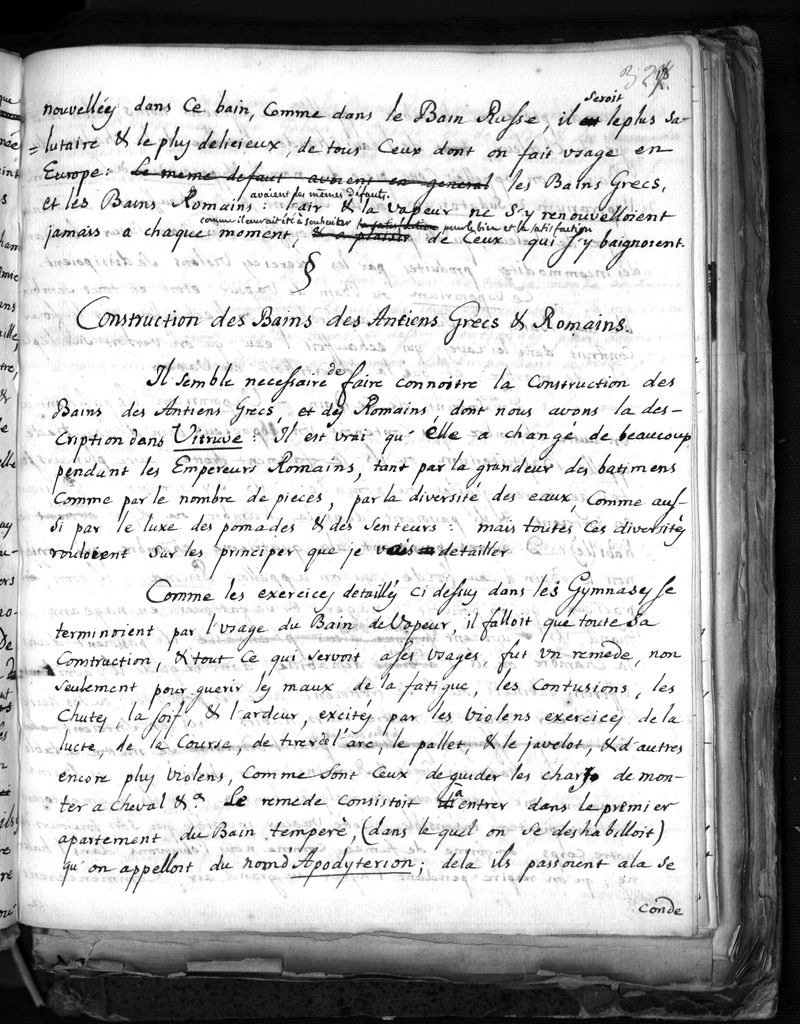 nouvelléz dans Ce bain, Comme dans le Bain Russe, il seroit le plus sa-
= lutaire & le plus delicieux, de tous Ceux dont on fait usage en
Europe: Le meme defaut avoient en general les Bains Grecs,
et les Bains Romains avaient les mêmes défauts: l'air & la vapeur ne s'y renouvelloient
jamais a chaque moment, comme il eurait été à souhaiter pour le bien et la satisfaction de Ceux qui s'y baignoient.
§
Construction des Bains des Antiens Grecs & Romains.
Il semble necessaire de faire connoitre la Construction des
Bains des Antiens Grecs, et des Romains; dont nous avons la des-
cription dans Vitruve: Il est vrai qu' elle a changé de beaucoup
pendant les Empereurs Romains, tant par la grandeur des batimens
Comme par le nombre de pieces, par la diversité des eaux, Comme aus-
si par le luxe des pomades & des senteurs: mais toutes Ces diversités
rouloient sur les principes que je vais detailler
Comme les exercices detaillés ci dessus dans les Gymnases se
terminoient par l'usage du Bain de Vapeur, il falloit que toute sa
Construction, & tout Ce qui servoit a ses usages, fut un remede, non
seulement pour guerir les maux de la fatigue, les Contusions, les
Chutes, la soif, & l'ardeur, excités par les violens exercices de la
lucte, de la Course, de tirer de l'arc, le pallet, & le javelot, & d'autres
encore plus violens, Comme sont Ceux de guider les chars de mon-
ter a cheval &a. Le remede Consistoit a entrer dans le premier
apartement du Bain temperè, (dans le quel on se deshabilloit)
qu' on appelloit du nom d'Apodyterion; dela ils passoient a la se
conde